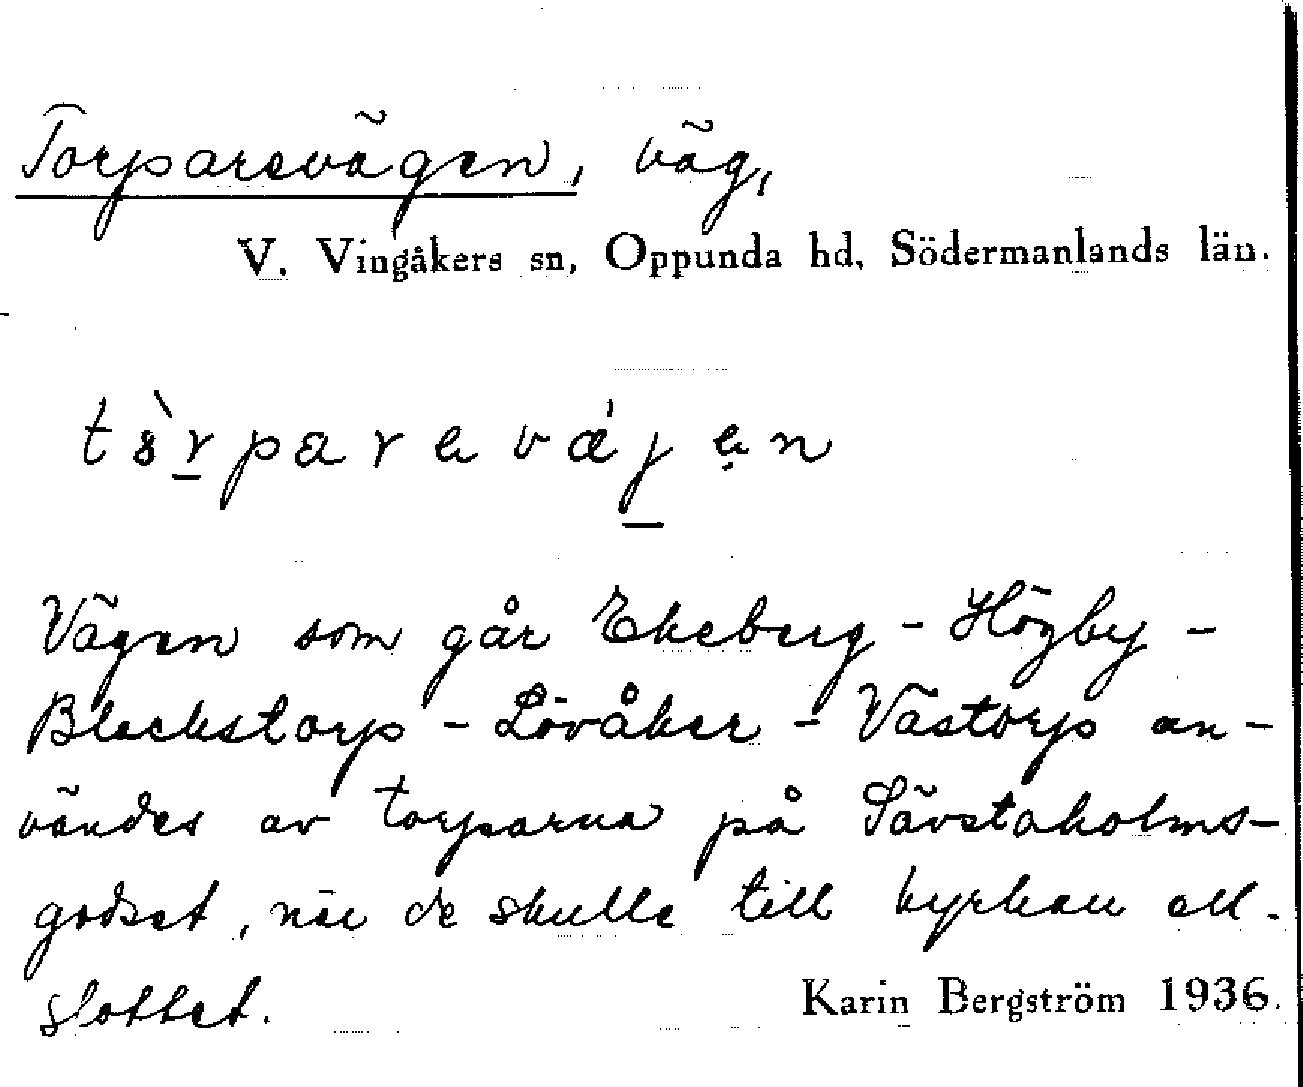 Torparevägen, väg,
V. Vingåkers sn, Oppunda hd, Södermanlands län.
Vägen som går Ekeberg - Högby -
Blackstorp - Lövåker - Västorp an-
vändes av torparna på Sävstaholms-
godset, när de skulle till kyrkan ell.
slottet.
Karin Bergström 1936.